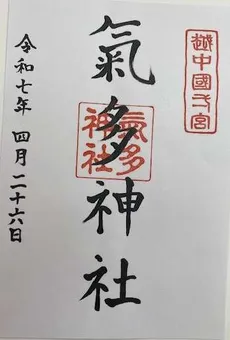 越中國一宮
氣多神社
氣多
神社
令和七年 四月二十六日